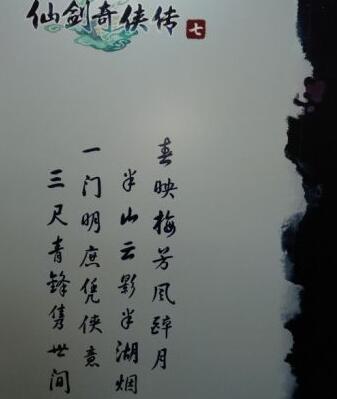 仙剑奇侠传
七
春映梅芳风醉月
半山云影半湖烟
一门明庶凭侠意
三尺青锋隽世间